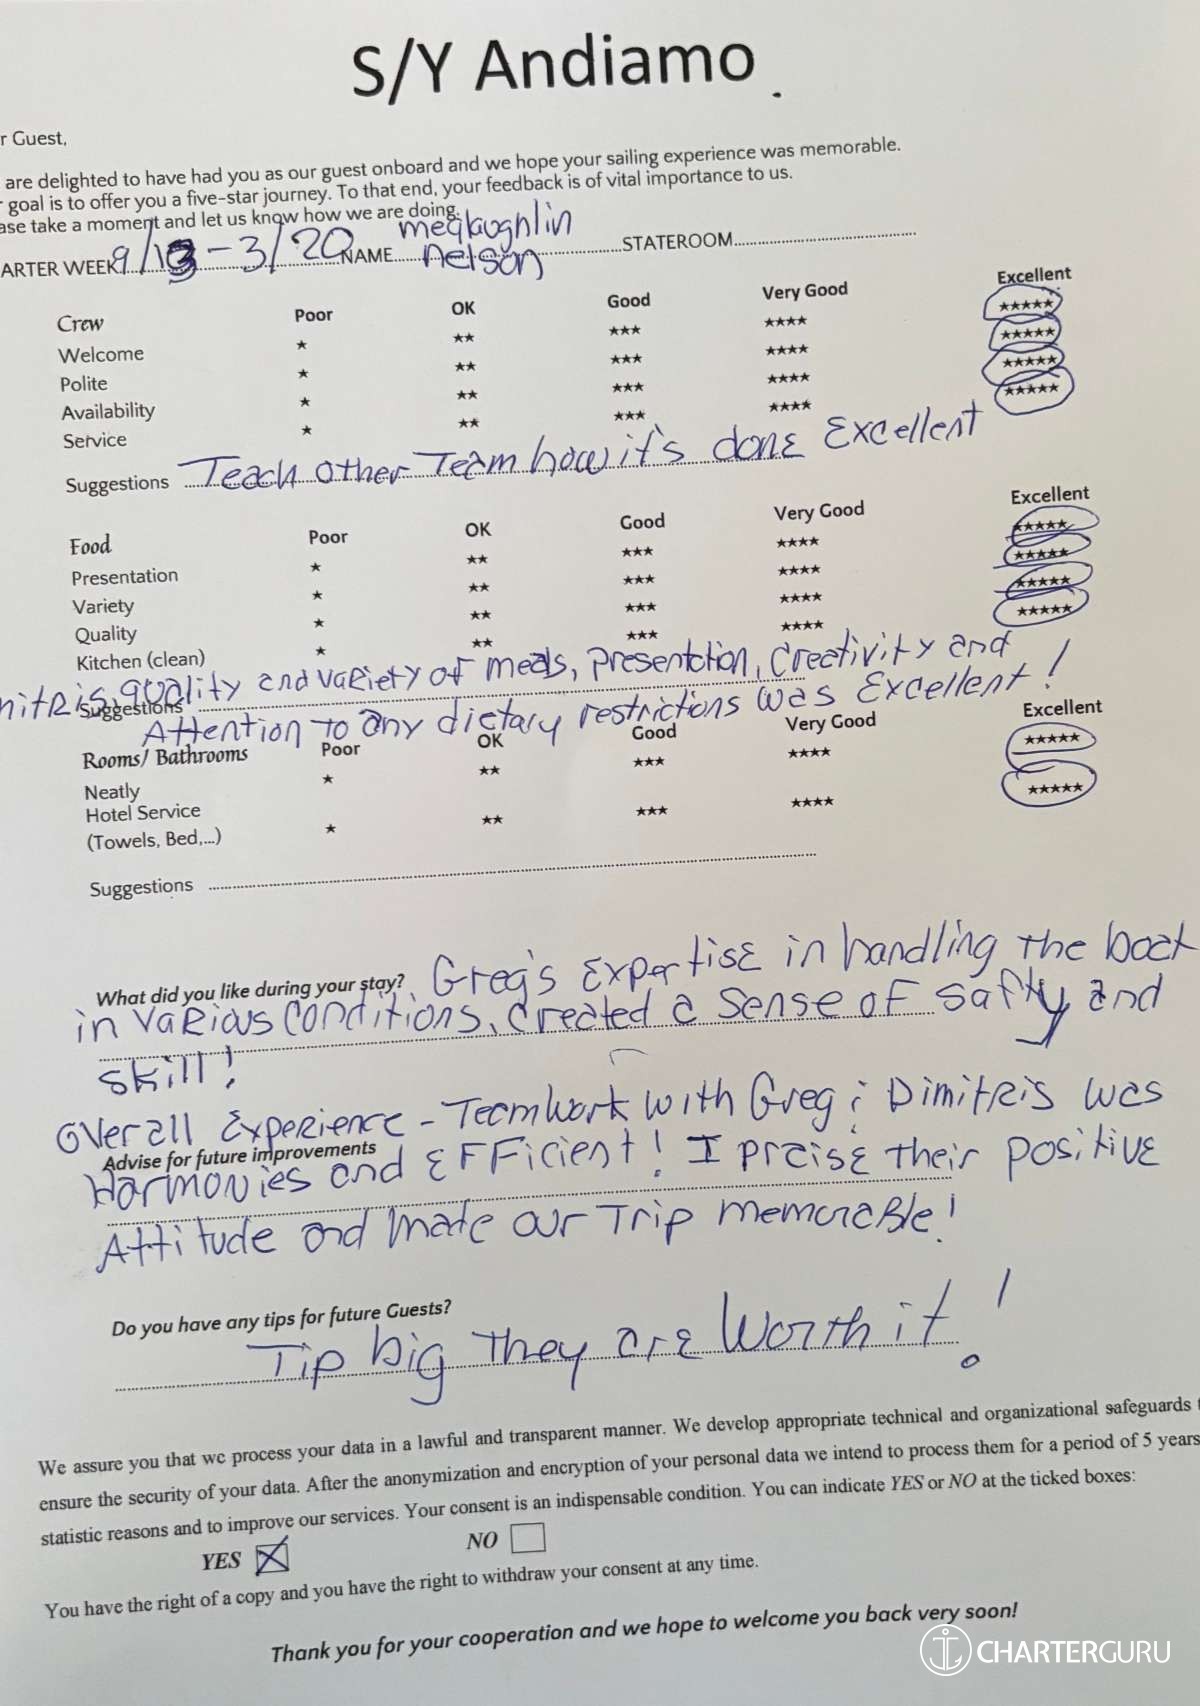 S/Y Andiamo
r Guest,
are delighted to have had you as our guest onboard and we hope your sailing experience was memorable.
goal is to offer you a five-star journey. To that end, your feedback is of vital importance to us.
ase take a moment and let us know how we are doing.
ARTER WEEK 9/13 - 3/20 NAME meglaughlin STATEROOM
nelson
Crew Poor OK Good Very Good Excellent
Welcome ★ ★★ ★★★ ★★★★ ★★★★★
Polite ★ ★★ ★★★ ★★★★ ★★★★★
Availability ★ ★★ ★★★ ★★★★ ★★★★★
Service ★ ★★ ★★★ ★★★★ ★★★★★
Suggestions Teach other Team how it's done Excellent
Food Poor OK Good Very Good Excellent
Presentation ★ ★★ ★★★ ★★★★ ★★★★★
Variety ★ ★★ ★★★ ★★★★ ★★★★★
Quality ★ ★★ ★★★ ★★★★ ★★★★★
Kitchen (clean) ★ ★★ ★★★ ★★★★ ★★★★★
mitris quality and variety of meals, presentation, creativity and
Suggestions
Attention to any dietary restrictions was Excellent!
Rooms/ Bathrooms Poor OK Good Very Good Excellent
Neatly ★ ★★ ★★★ ★★★★ ★★★★★
Hotel Service
(Towels, Bed,...) ★ ★★ ★★★ ★★★★ ★★★★★
Suggestions
What did you like during your stay? Greg's Expertise in handling the boat
in various conditions, created a sense of safty and
skill!
Overall Experience - Teamwork with Greg & Dimitris was
Advise for future improvements
Harmonies and Efficient! I praise their positive
Attitude and made our Trip memorable!
Do you have any tips for future Guests?
Tip big they are Worth it!
We assure you that we process your data in a lawful and transparent manner. We develop appropriate technical and organizational safeguards t
ensure the security of your data. After the anonymization and encryption of your personal data we intend to process them for a period of 5 years
statistic reasons and to improve our services. Your consent is an indispensable condition. You can indicate YES or NO at the ticked boxes:
YES NO
You have the right of a copy and you have the right to withdraw your consent at any time.
Thank you for your cooperation and we hope to welcome you back very soon!
CHARTERGURU